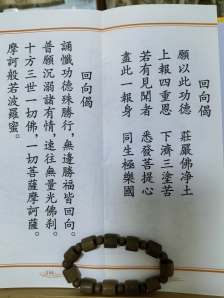 回向偈
願以此功德 莊嚴佛淨土
上報四重恩 下濟三塗苦
若有見聞者 悉發菩提心
盡此一報身 同生極樂國
回向偈
誦懺功德殊勝行，無邊勝福皆回向。
普願沉溺諸有情，速往無量光佛剎。
十方三世一切佛，一切菩薩摩訶薩。
摩訶般若波羅蜜。